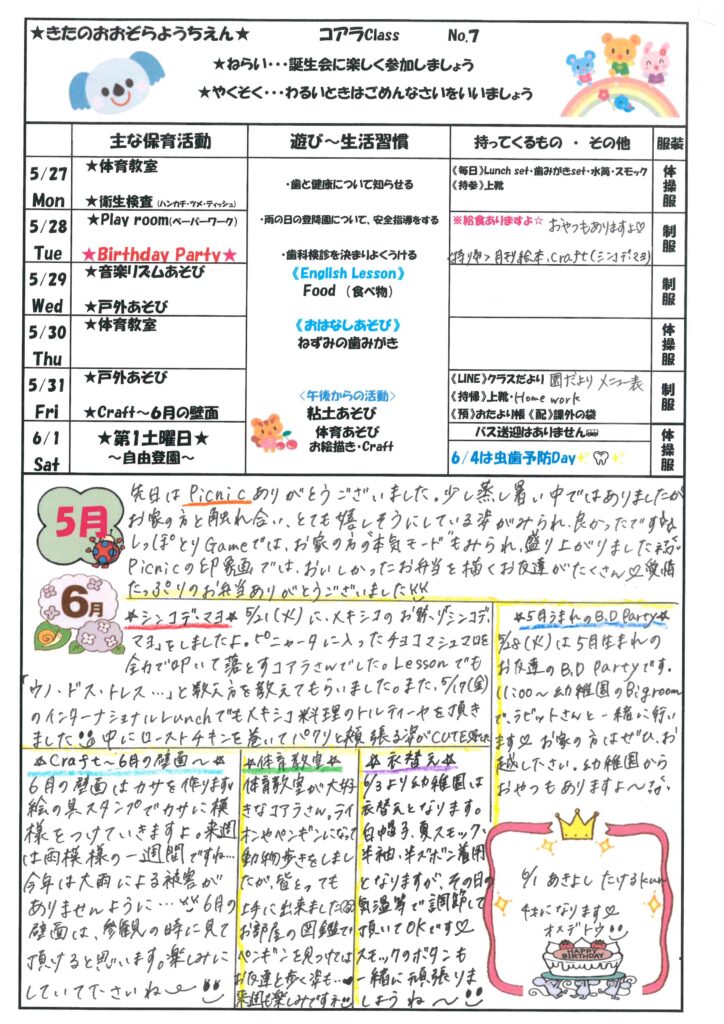 ★きたのおおぞらようちえん★　コアラClass　No.7
★ねらい・・・誕生会に楽しく参加しましょう
★やくそく・・・わるいときはごめんなさいをいいましょう
主な保育活動　遊び～生活習慣　持ってくるもの ・ その他　服装
5/27 Mon
★体育教室
★衛生検査（ハンカチ・ツメ・ティッシュ）
・歯と健康について知らせる
《毎日》Lunch set・歯みがきset・水筒・スモック
《持参》上靴
体操服
5/28 Tue
★Play room(ペーパーワーク)
★Birthday Party★
・雨の日の登降園について、安全指導をする
・歯科検診を決まりよくうける
※給食ありますよ☆ おやつもありますよ♡
月刊絵本、Craft(シンコデマヨ)
制服
5/29 Wed
★音楽リズムあそび
★戸外あそび
《English Lesson》
Food （食べ物）
制服
5/30 Thu
★体育教室
《おはなしあそび》
ねずみの歯みがき
体操服
5/31 Fri
★戸外あそび
★Craft～6月の壁面
〈午後からの活動〉
粘土あそび
体育あそび
お絵描き・Craft
《LINE》クラスだより 園だより メニュー表
《持帰》上靴・Home work
《預》おたより帳 《配》課外の袋
制服
6/1 Sat
★第1土曜日★
～自由登園～
バス送迎はありません
6/4は虫歯予防Day
体操服
5月
6月
先日はPicnicありがとうございました。少し蒸し暑い中ではありましたが
お家の方と触れ合い、とても嬉しそうにしている姿がみられ、良かったです
しっぽとりGameでは、お家の方の"本気モード"もみられ、盛り上がりました
Picnicの印象画では、おいしかったお弁当を描くお友達がたくさん♡愛情
たっぷりのお弁当ありがとうございました
★シンコデマヨ★ 5/21(火)に、メキシコのお祭り「シンコデ
マヨ」をしましたよ。ピニャータに入ったチョコマシュマロを
全力で叩いて落とすコアラさんでした。Lessonでも
「ウノ・ドス・トレス…」と数え方を教えてもらいました。また、5/17(金)
のインターナショナルLunchでもメキシコ料理のトルティーヤを頂き
ました 中にローストチキンを巻いてパクリと頬張る姿がCUTEでした
★5月うまれのB.D Party★
5/28(火)は5月生まれの
お友達のB.D Partyです。
11:00～幼稚園のBigroom
で、ラビットさんと一緒に行い
ます♡ お家の方はぜひ、お
越し下さい。幼稚園から
おやつもありますよ～
☆Craft～6月の壁面～☆
6月の壁面はカサを作ります。
絵の具スタンプでカサに模
様をつけていきますよ。来週
は雨模様の一週間ですね…
今年は大雨による被害が
ありませんように… 6月の
壁面は、参観の時に見て
頂けると思います。楽しみに
していて下さいね～
☆体育教室☆
体育教室が大好
きなコアラさん。ライ
オンやペンギンになって
動物歩きをしまし
たが、皆とっても
上手に出来ました
お部屋の図鑑で
ペンギンを見つけては
お友達と歩く姿も…
来週も楽しみです
☆衣替え☆
6/3より幼稚園は
衣替えとなります。
白帽子、夏スモック、
半袖、半ズボン着用
となりますが、その日の
気温等で調節して
頂いてOKです♡
スモックのボタンも
一緒に頑張りま
しょうね～
6/1 あきよし たけるkun
4才になります♡
オメデトウ
HAPPY BIRTHDAY